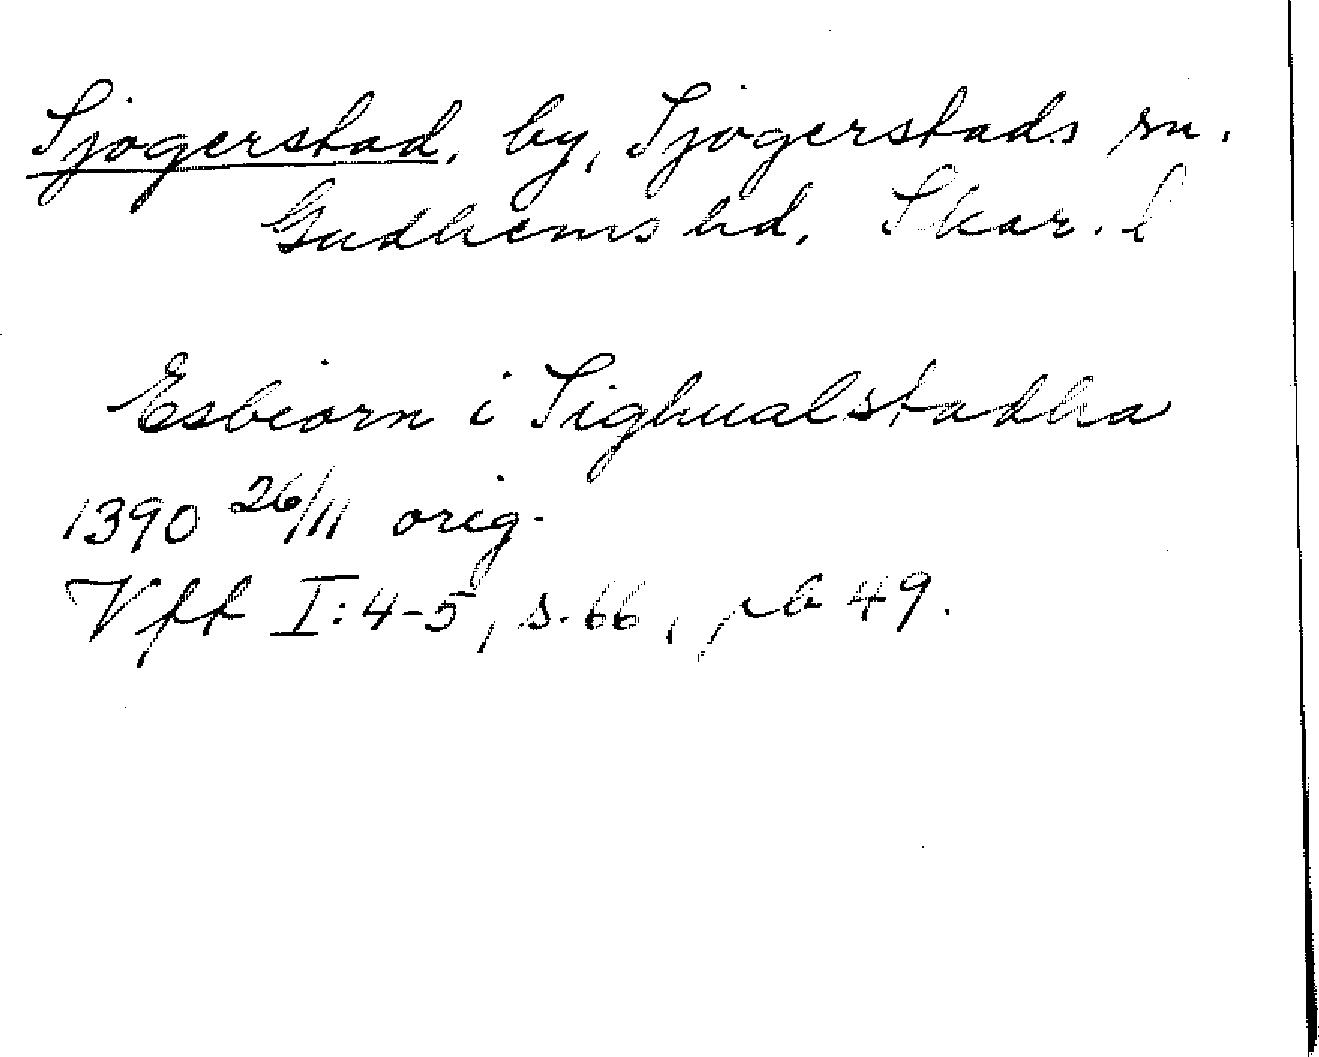 Sjogerstad, by, Sjogerstads sn.
Gudhems hd. Skar. l
Esbiorn i Sighualstadha
1390 26/11 orig.
Vff I:4-5, s. 66, pb 49.